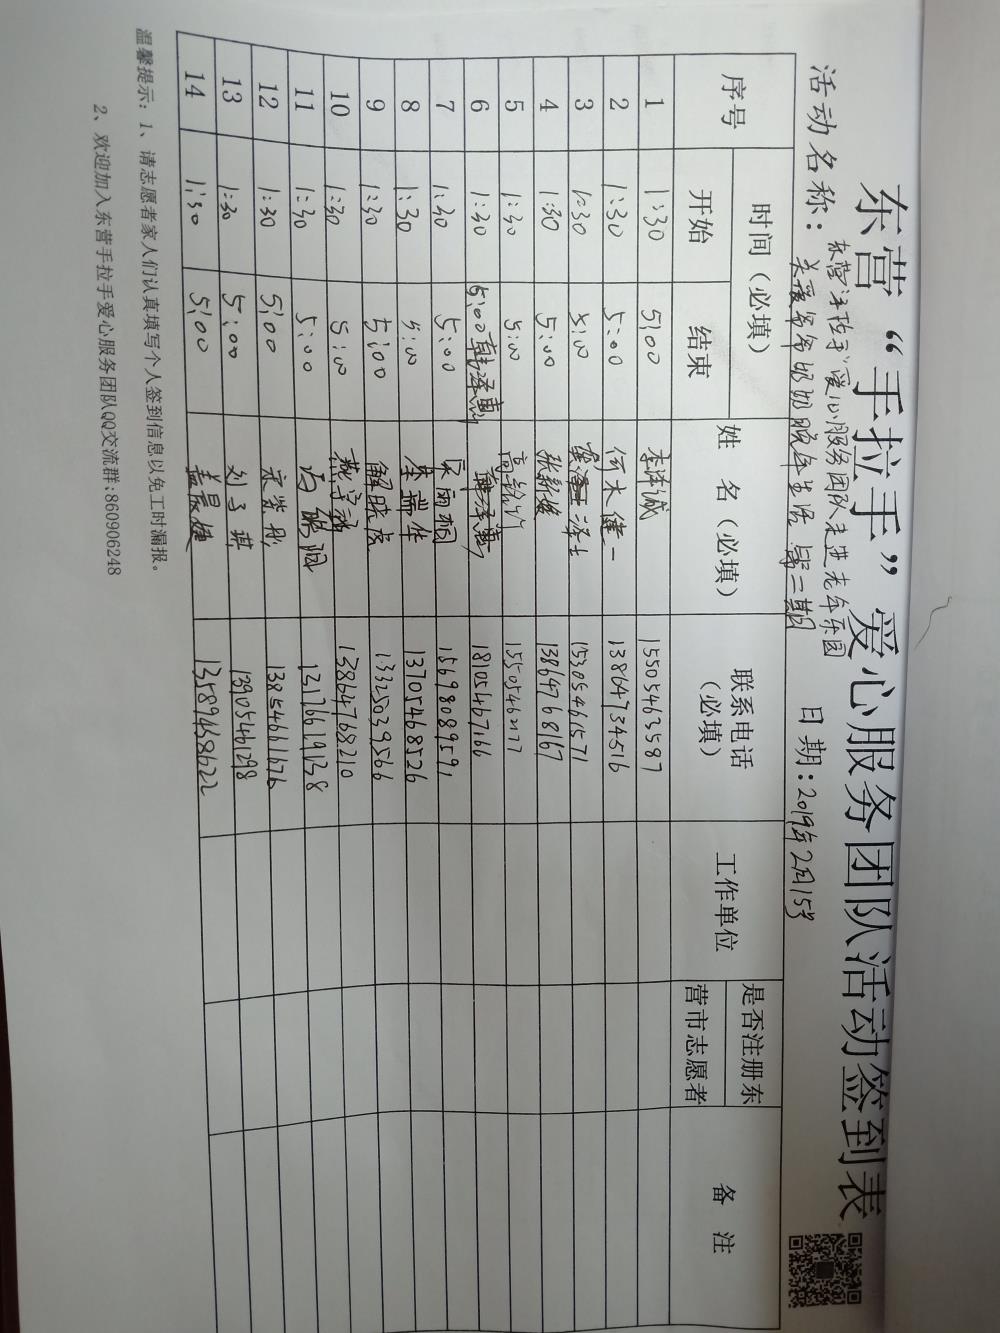 东营“手拉手”爱心服务团队活动签到表
活动名称：东营"手拉手"爱心服务团队走进老年乐园
关爱爷爷奶奶晚年生活 第二期 日期：2019年2月15号
序号 时间（必填） 姓名（必填） 联系电话（必填） 工作单位 是否注册东营市志愿者 备注
开始 结束
1 1:30 5:00 李泽诚 15505463587
2 1:30 5:00 何木健一 13864734516
3 1:30 5:00 15305461571
4 1:30 5:00 张新俊 13864768167
5 1:30 5:00 高铭竹 15505462177
6 1:30 5:00 韩泽惠 18105467166
7 1:30 5:00 宋雨桐 15698089591
8 1:30 5:00 秦瑞华 13705468526
9 1:30 5:00 解晓亮 13325039566
10 1:30 5:00 13864768210
11 1:30 5:00 13176619138
12 1:30 5:00 13854661676
13 1:30 5:00 刘子琪 13905461298
14 1:30 5:00 盖晨婕 13589468622
温馨提示：1、请志愿者家人们认真填写个人签到信息以免工时漏报。
2、欢迎加入东营手拉手爱心服务团队QQ交流群:860906248